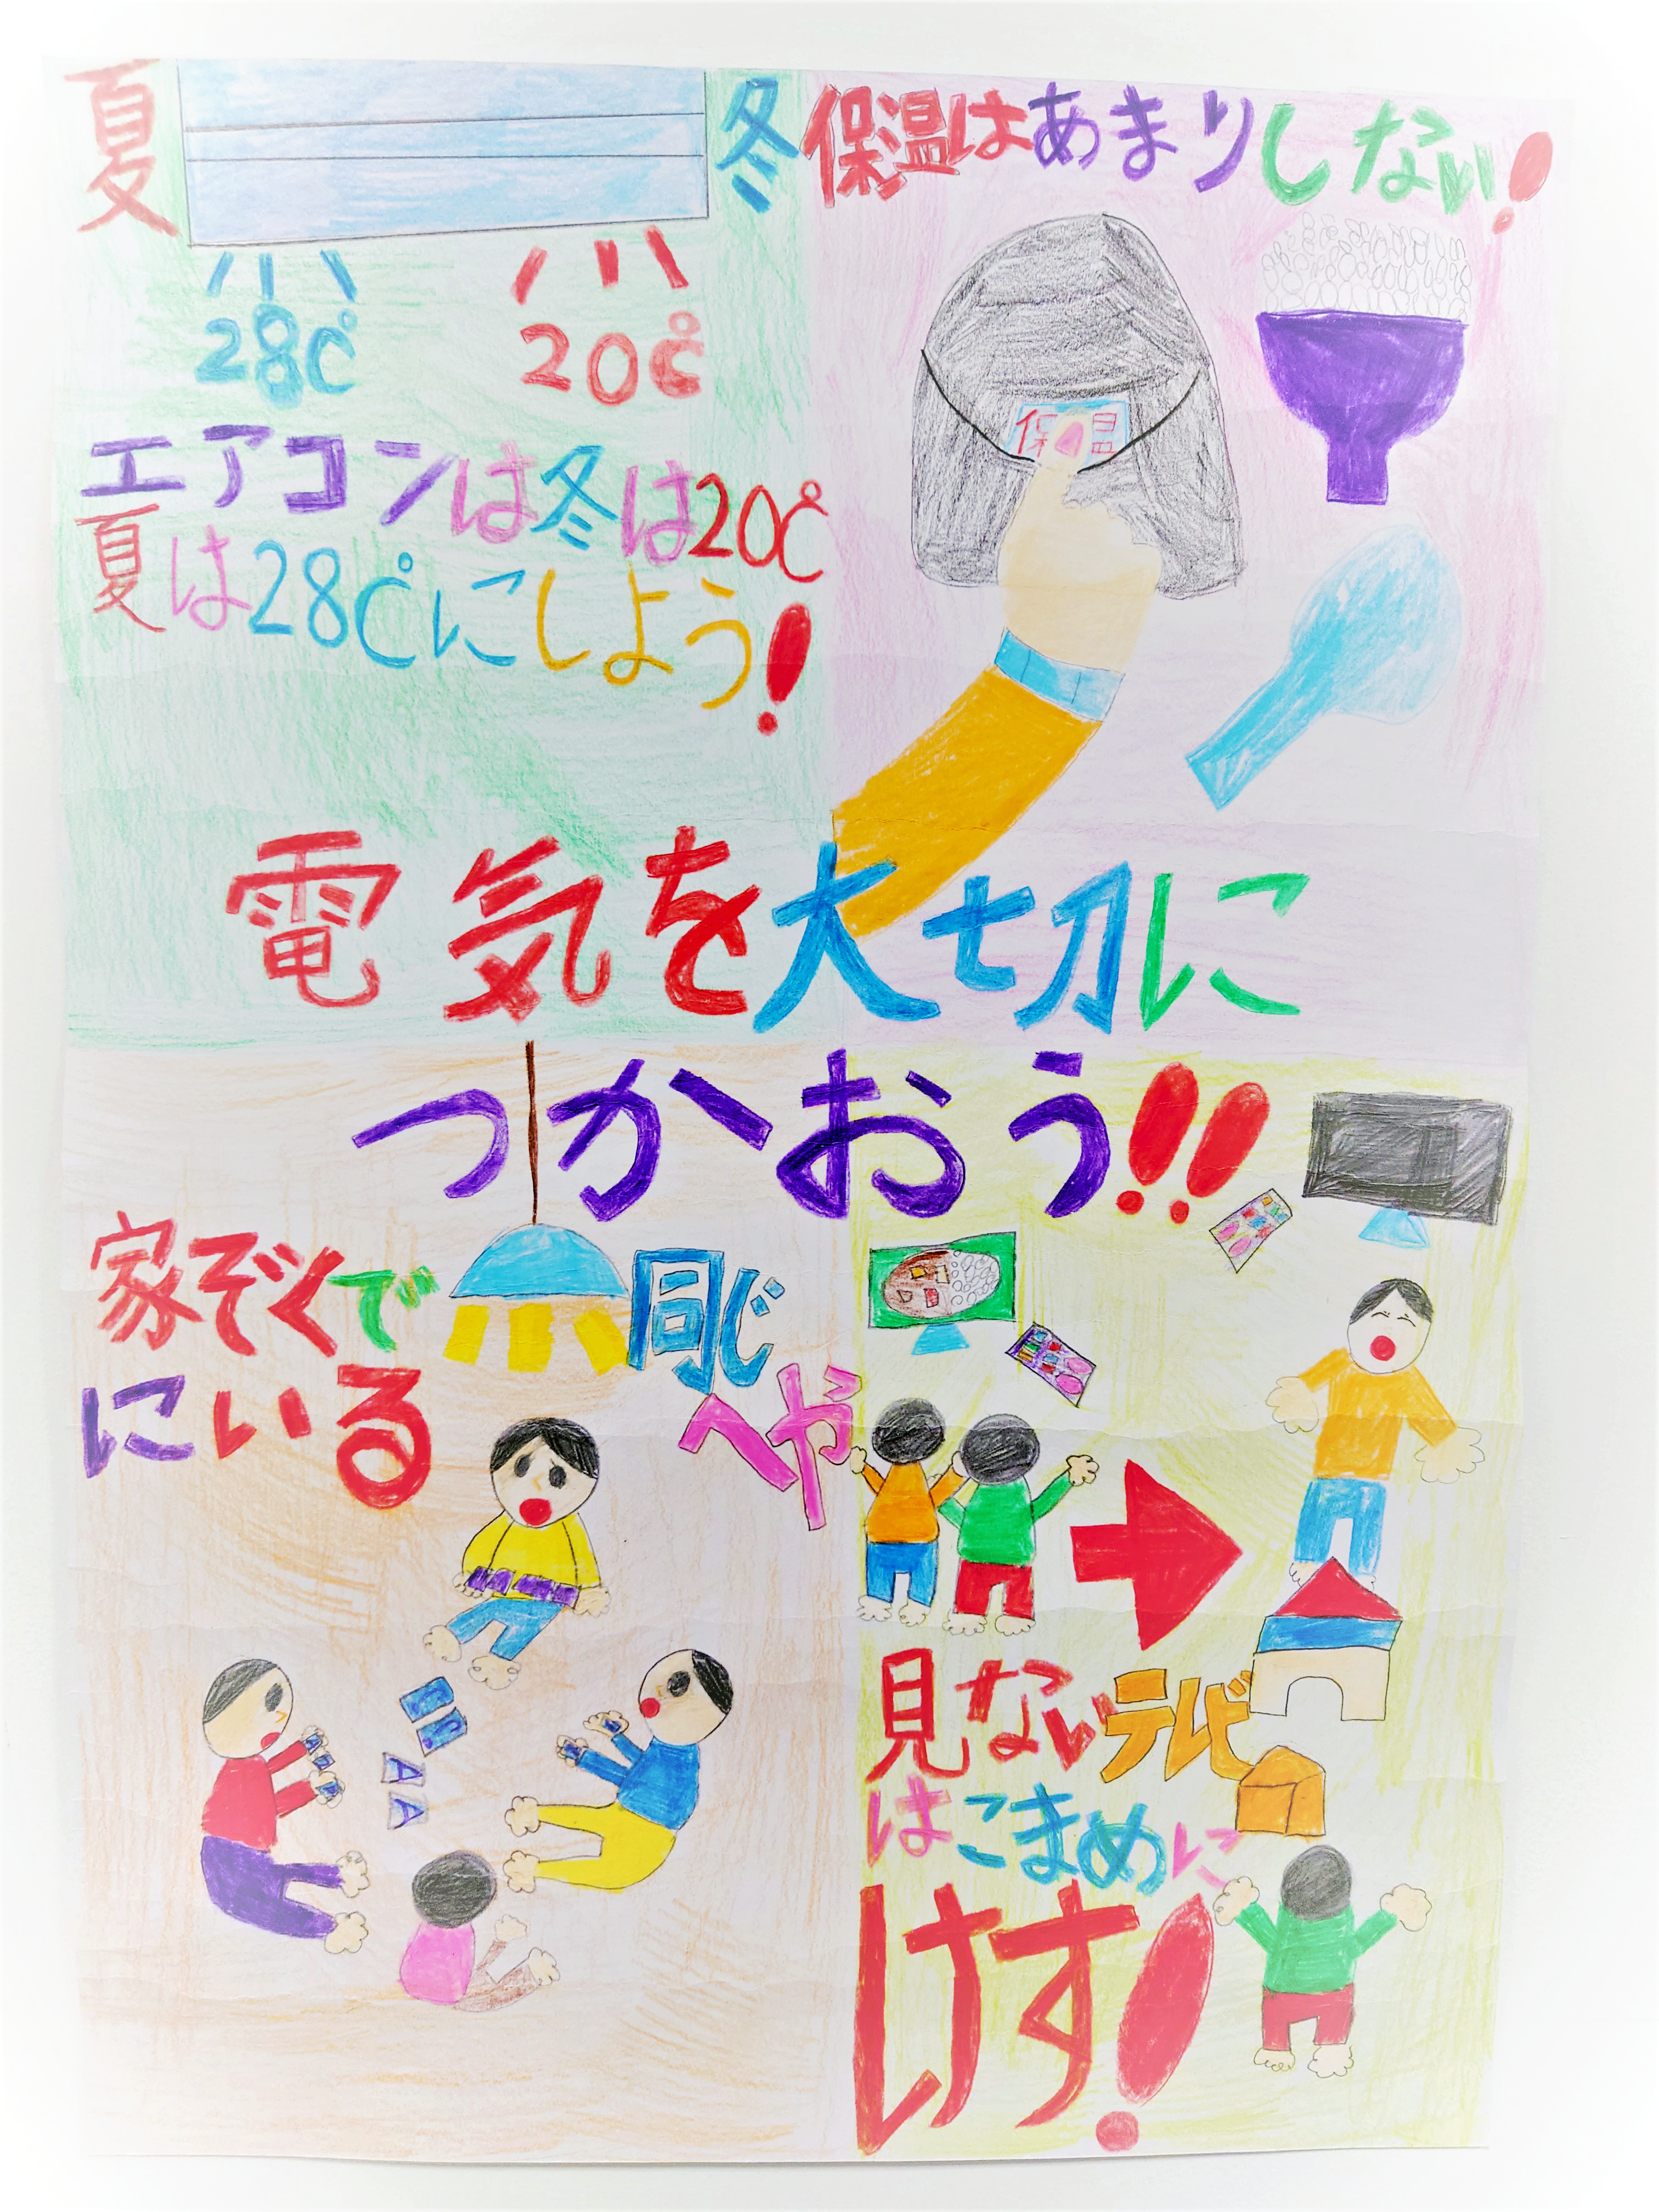 夏
冬
28℃
20℃
エアコンは冬は20℃
夏は28℃にしよう!
保温はあまりしない!
保温
電気を大切に
つかおう!!
家ぞくで同じへや
にいる
見ないテレビ
はこまめに
けす!